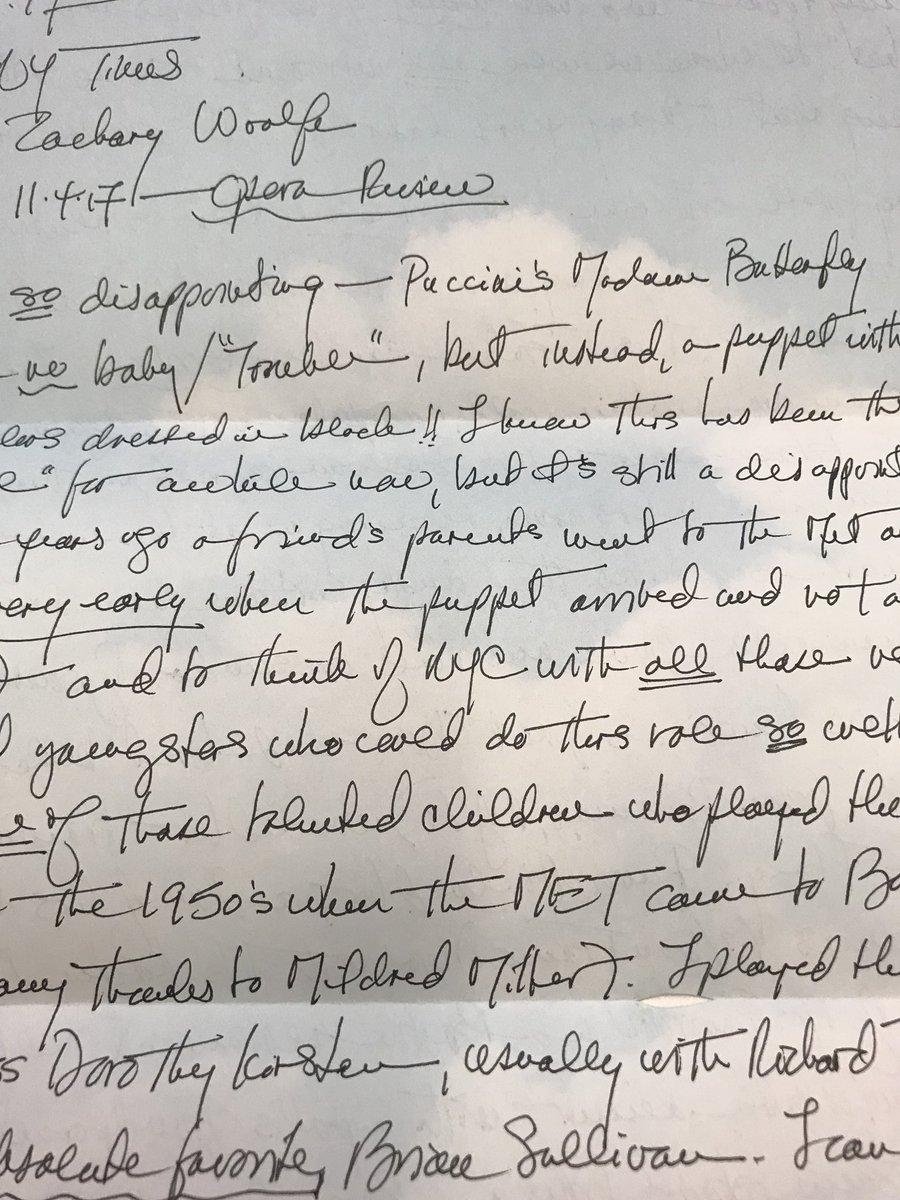 .17
NY Times
Zachary Woolfe
11.4.17 — Opera Review
so disappointing — Puccini's Madame Butterfly
- no baby / "Trouble", but instead, a puppet with
dressed in black!! I know this has been th
e" for awhile now, but it's still a disappoint
years ago a friend's parents went to the Met a
very early when the puppet arrived and not a
and to think of NYC with all those
youngsters who could do this role so well
of those talented children who played the
the 1950's when the MET came to Ba
any thanks to Mildred Miller). I played the
s Dorothy Kirsten, usually with Richard T
bsolute favorite, Brian Sullivan. I can